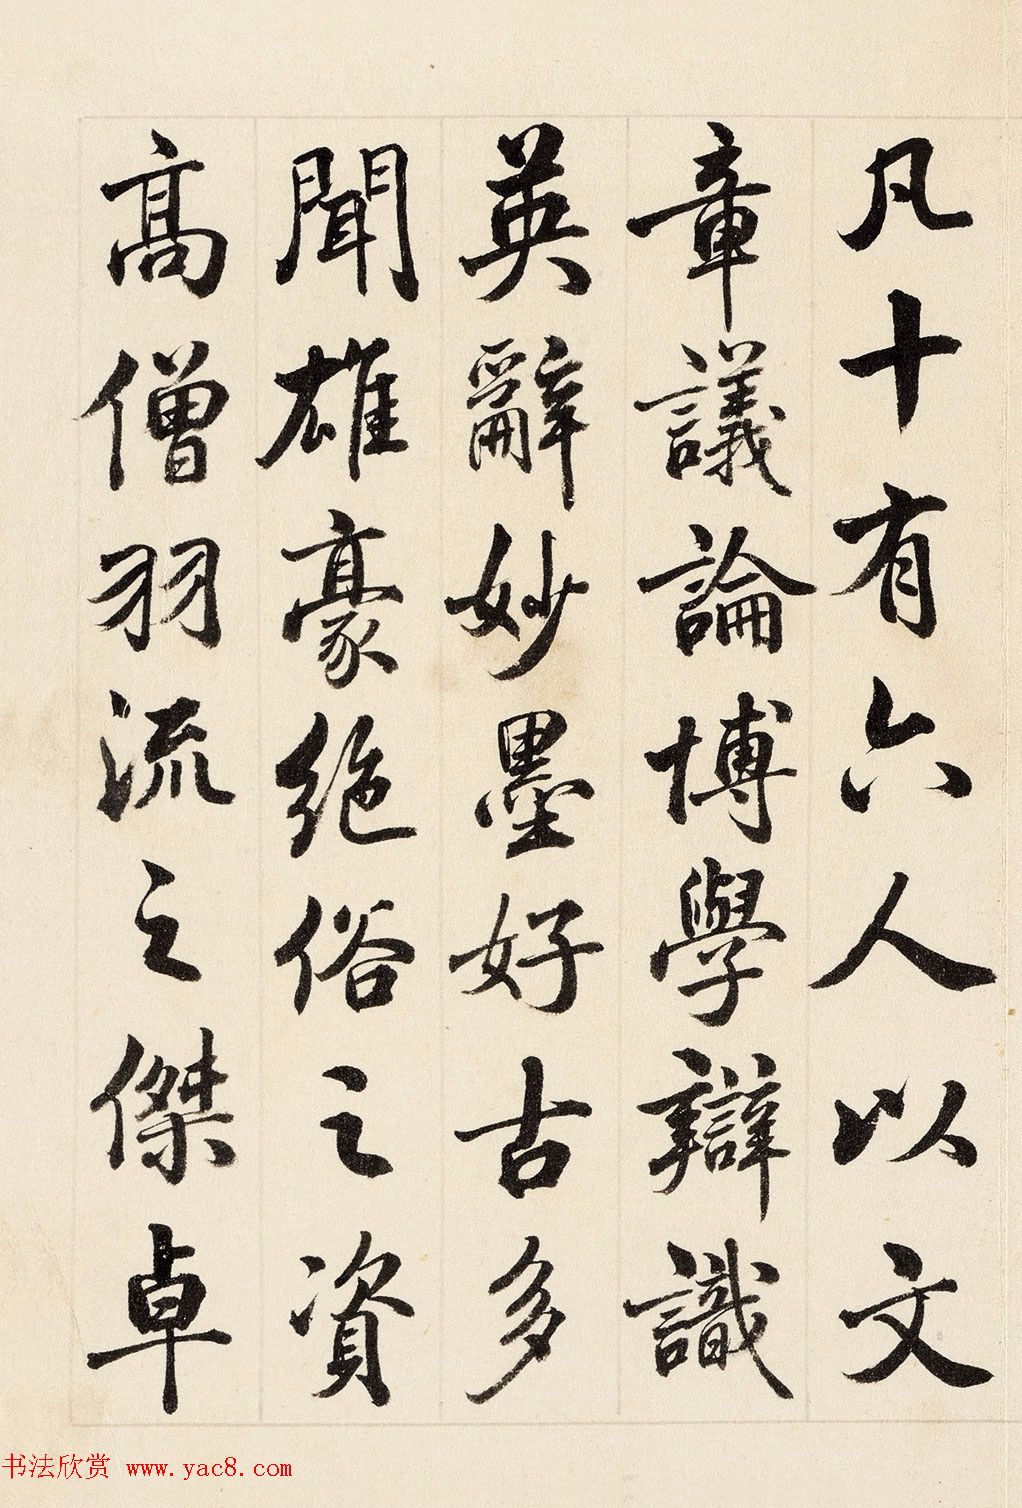 凡十有六人以文
章議論博學辯識
英辭妙墨好古多
聞雄豪絕俗之資
高僧羽流之傑卓
书法欣赏 www.yac8.com